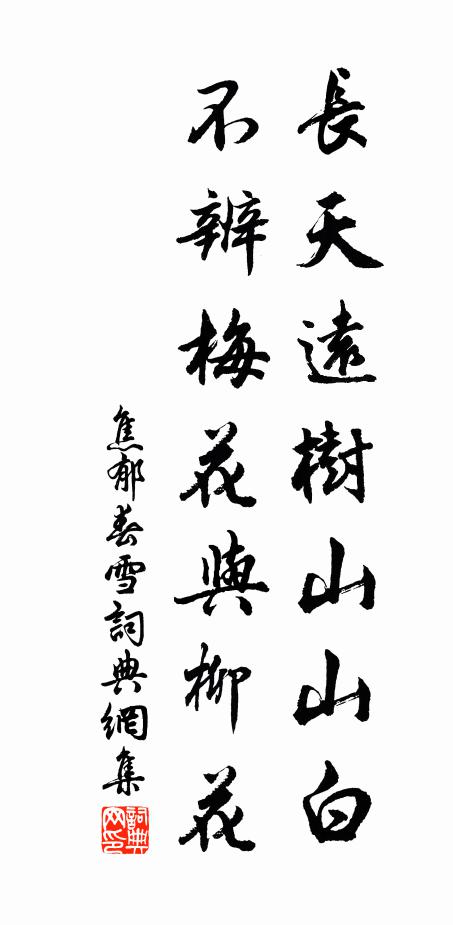 長天遠樹山山白
不辨梅花與柳花
焦郁春雪詞典網集
詞典網印